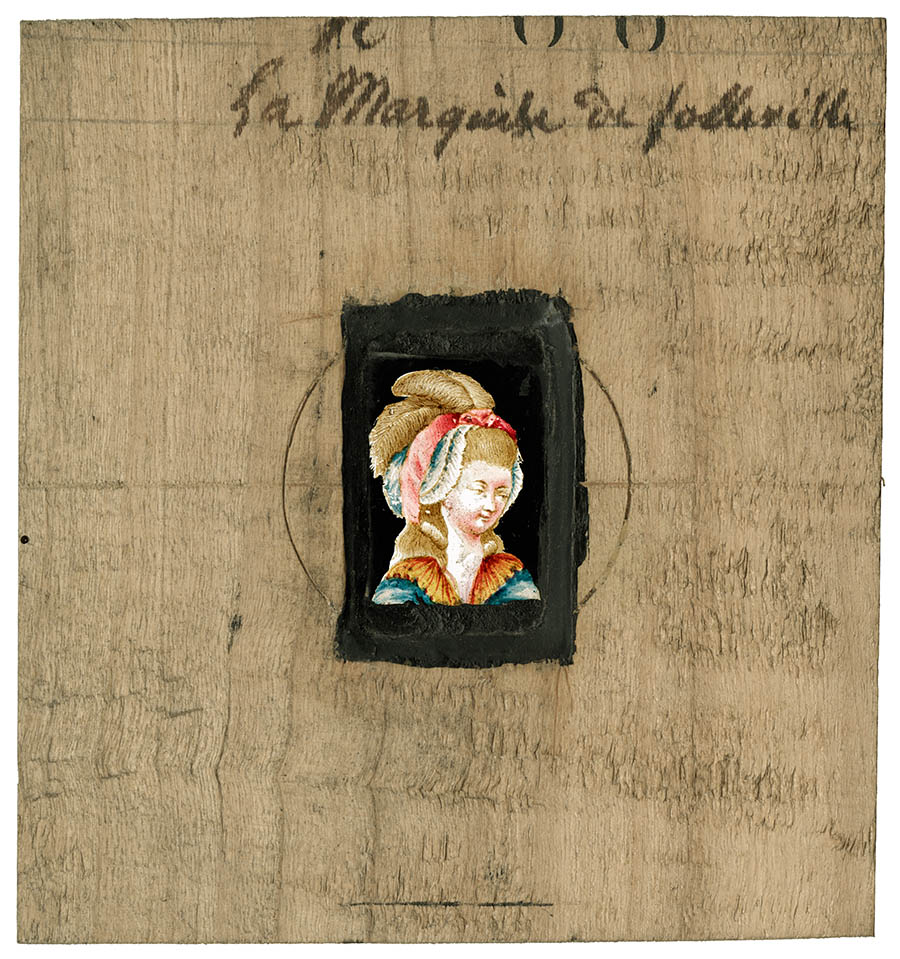 La Marquise de folleville